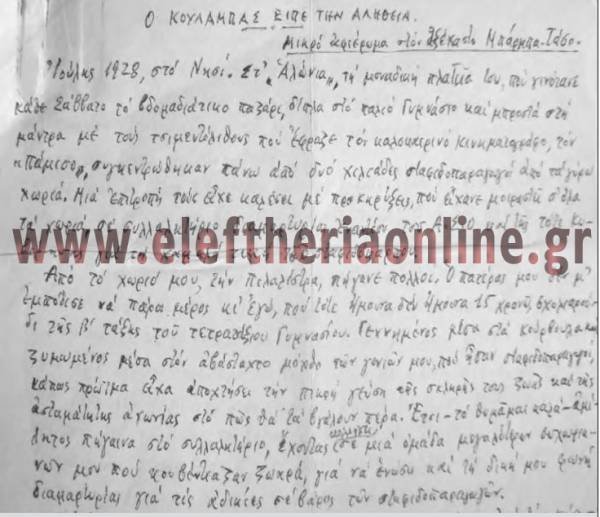 Ο ΚΟΥΛΑΜΠΑΣ ΕΙΠΕ ΤΗΝ ΑΛΗΘΕΙΑ.
Μικρό αφιέρωμα στον αξέχαστο Μπάρμπα-Τάσο.
Ἰούλης 1928, στό Νησί. Στ' "Ἁλώνια", τή μοναδική πλατεῖα του, πού γινότανε
κάθε Σάββατο τό βδομαδιάτικο παζάρι, δίπλα στό παλιό Γυμνάσιο καί μπροστά στή
μάντρα μέ τούς τσιμεντόλιθους πού ἔφραζε τόν καλοκαιρινό κινηματογράφο, τόν
"Πάμισο", συγκεντρώθηκαν πάνω ἀπό δυό χιλιάδες σταφιδοπαραγωγοί ἀπό τά γύρω
χωριά. Μιά ἐπιτροπή τούς εἶχε καλέσει μέ προκηρύξεις, πού εἴχανε μοιραστῆ σ' ὅλα
τά χωριά, σέ συλλαλητήριο διαμαρτυρίας
www.eleftheriaonline.gr
Ἀπό τό χωριό μου, τήν Πιλαλίστρα, πήγανε πολλοί. Ὁ πατέρας μου δέν μ'
ἐμπόδισε νά πάρω μέρος κι' ἐγώ, πού τότε ἤμουνα δέν ἤμουνα 15 χρονῶ, σχολιαρού-
δι τῆς β' τάξης τοῦ τετραταξίου Γυμνασίου. Γεννημένος μέσα στά κούρβουλα καί
ζυμωμένος μέσα στόν ἀβάσταχτο μόχθο τῶν γονιῶν μου, πού ἦσαν σταφιδοπαραγωγοί,
κάπως πρώιμα εἶχα ἀποχτήσει τήν πικρή γεύση τῆς σκληρῆς τους ζωῆς καί τῆς
ἀσταμάτητης ἀγωνίας στό πῶς θά τά βγάλουν πέρα. Ἔτσι -τό θυμᾶμαι καλά- ἀμί-
λητος πήγαινα στό συλλαλητήριο, ἔχοντας σέ μιά ὁμάδα μεγαλύτερων συχωρια-
νῶν μου πού κουβέντιαζαν ζωηρά, γιά νά ἑνώσω καί τή δική μου φωνή
διαμαρτυρίας γιά τίς ἀδικίες σέ βάρος τῶν σταφιδοπαραγωγῶν.